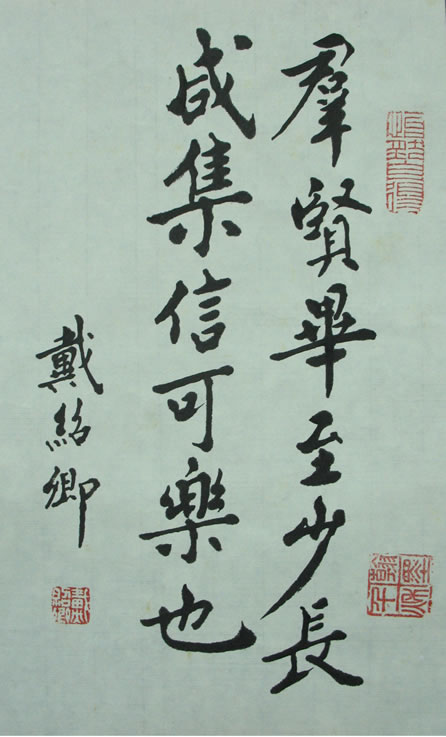 羣賢畢至少長
咸集信可樂也
戴紹卿